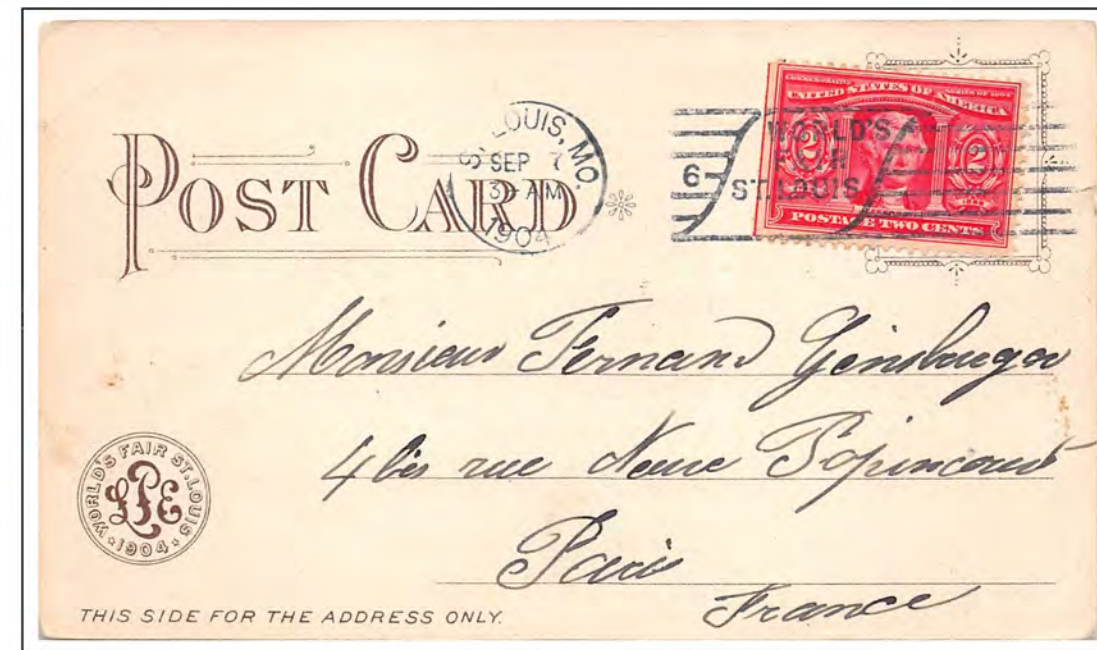 POST CARD
ST. LOUIS, MO.
SEP 7
3 30 AM
1904
6
WORLD'S
FAIR
ST. LOUIS
COMMEMORATIVE SERIES OF 1904
UNITED STATES OF AMERICA
2 2
POSTAGE TWO CENTS
Monsieur Fernand
4 bis rue Neuve Popincourt
Paris
France
WORLD'S FAIR ST. LOUIS
1904
LPE
THIS SIDE FOR THE ADDRESS ONLY.